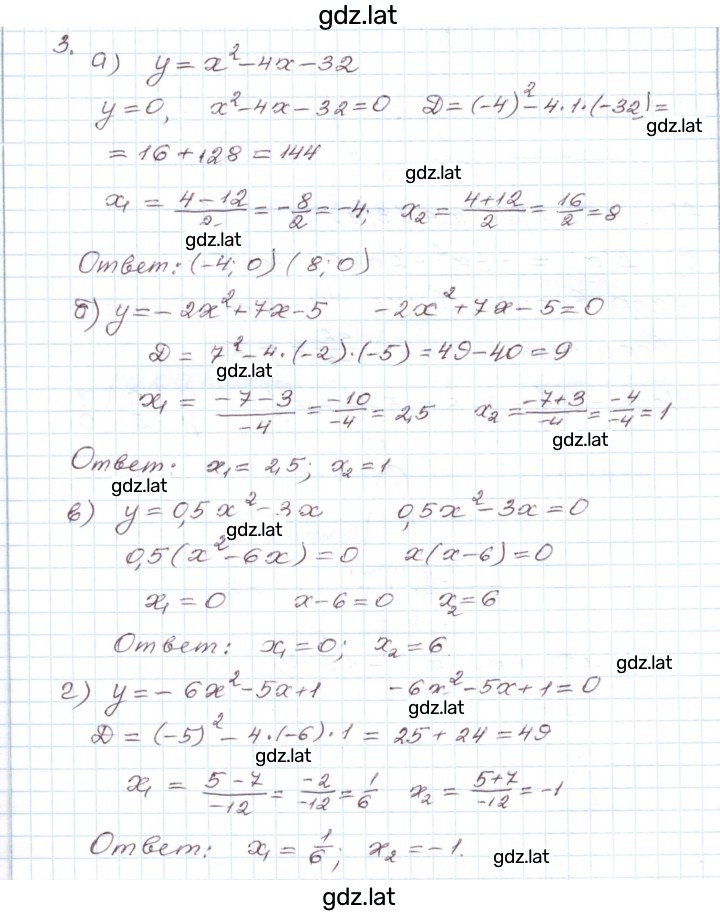 gdz.lat
3. а) y = x² - 4x - 32
y = 0, x² - 4x - 32 = 0 D = (-4)² - 4·1·(-32) =
gdz.lat
= 16 + 128 = 144
gdz.lat
x₁ = (4-12)/2 = -8/2 = -4; x₂ = (4+12)/2 = 16/2 = 8
gdz.lat
Ответ: (-4; 0) (8; 0)
б) y = -2x² + 7x - 5 -2x² + 7x - 5 = 0
D = 7² - 4·(-2)·(-5) = 49 - 40 = 9
gdz.lat
x₁ = (-7-3)/-4 = -10/-4 = 2,5 x₂ = (-7+3)/-4 = -4/-4 = 1
gdz.lat
Ответ: x₁ = 2,5; x₂ = 1
gdz.lat
в) y = 0,5x² - 3x 0,5x² - 3x = 0
gdz.lat
0,5(x² - 6x) = 0 x(x - 6) = 0
x₁ = 0 x - 6 = 0 x₂ = 6
Ответ: x₁ = 0; x₂ = 6.
gdz.lat
г) y = -6x² - 5x + 1 -6x² - 5x + 1 = 0
gdz.lat
D = (-5)² - 4·(-6)·1 = 25 + 24 = 49
gdz.lat
x₁ = (5-7)/-12 = -2/-12 = 1/6 x₂ = (5+7)/-12 = -1
Ответ: x₁ = 1/6; x₂ = -1.
gdz.lat
gdz.lat